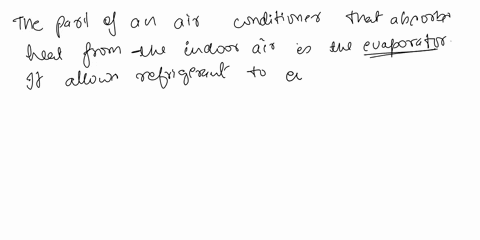 The part of an air conditioner that absorbs
heat from the indoor air is the evaporator.
It allows refrigerant to e